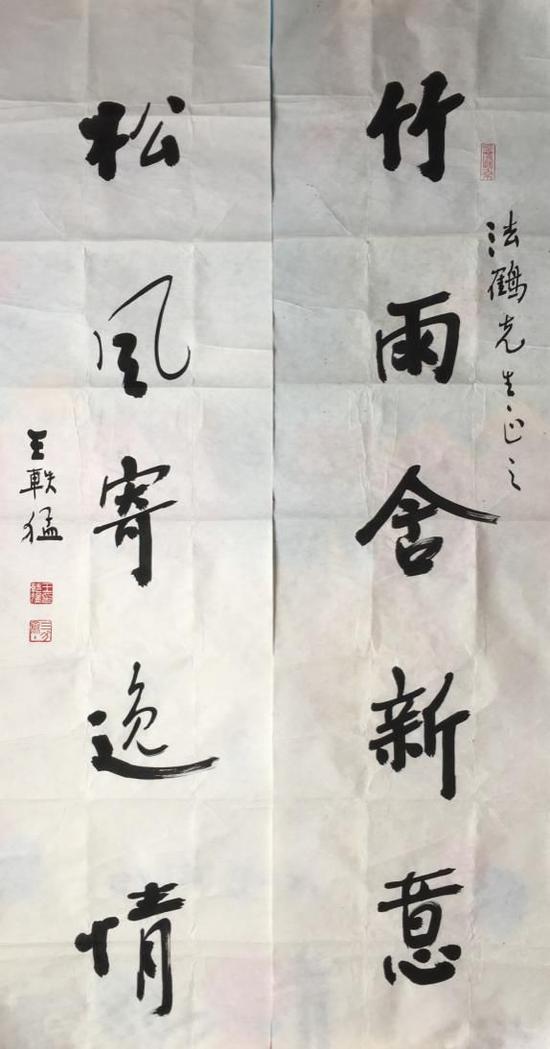 竹雨含新意
法鶴先生正之
松風寄逸情
王軼猛